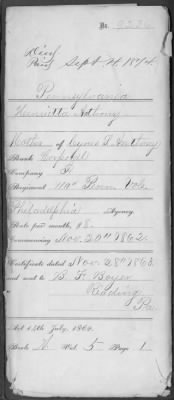 No. 9226
Died Sept 24 1874.
Pennsylvania
Henrietta Anthony
Mother of Cyrus L Anthony
Rank Corporal
Company F
Regiment 119" Penn Vols
Philadelphia Agency.
Rate per month, $8.
Commencing Nov. 20th 1862.
Certificate dated Nov 28th 1863
and sent to B. F. Boyer
Reading
Pa.
Act 14th July, 1862.
Book A Vol. 5 Page 1